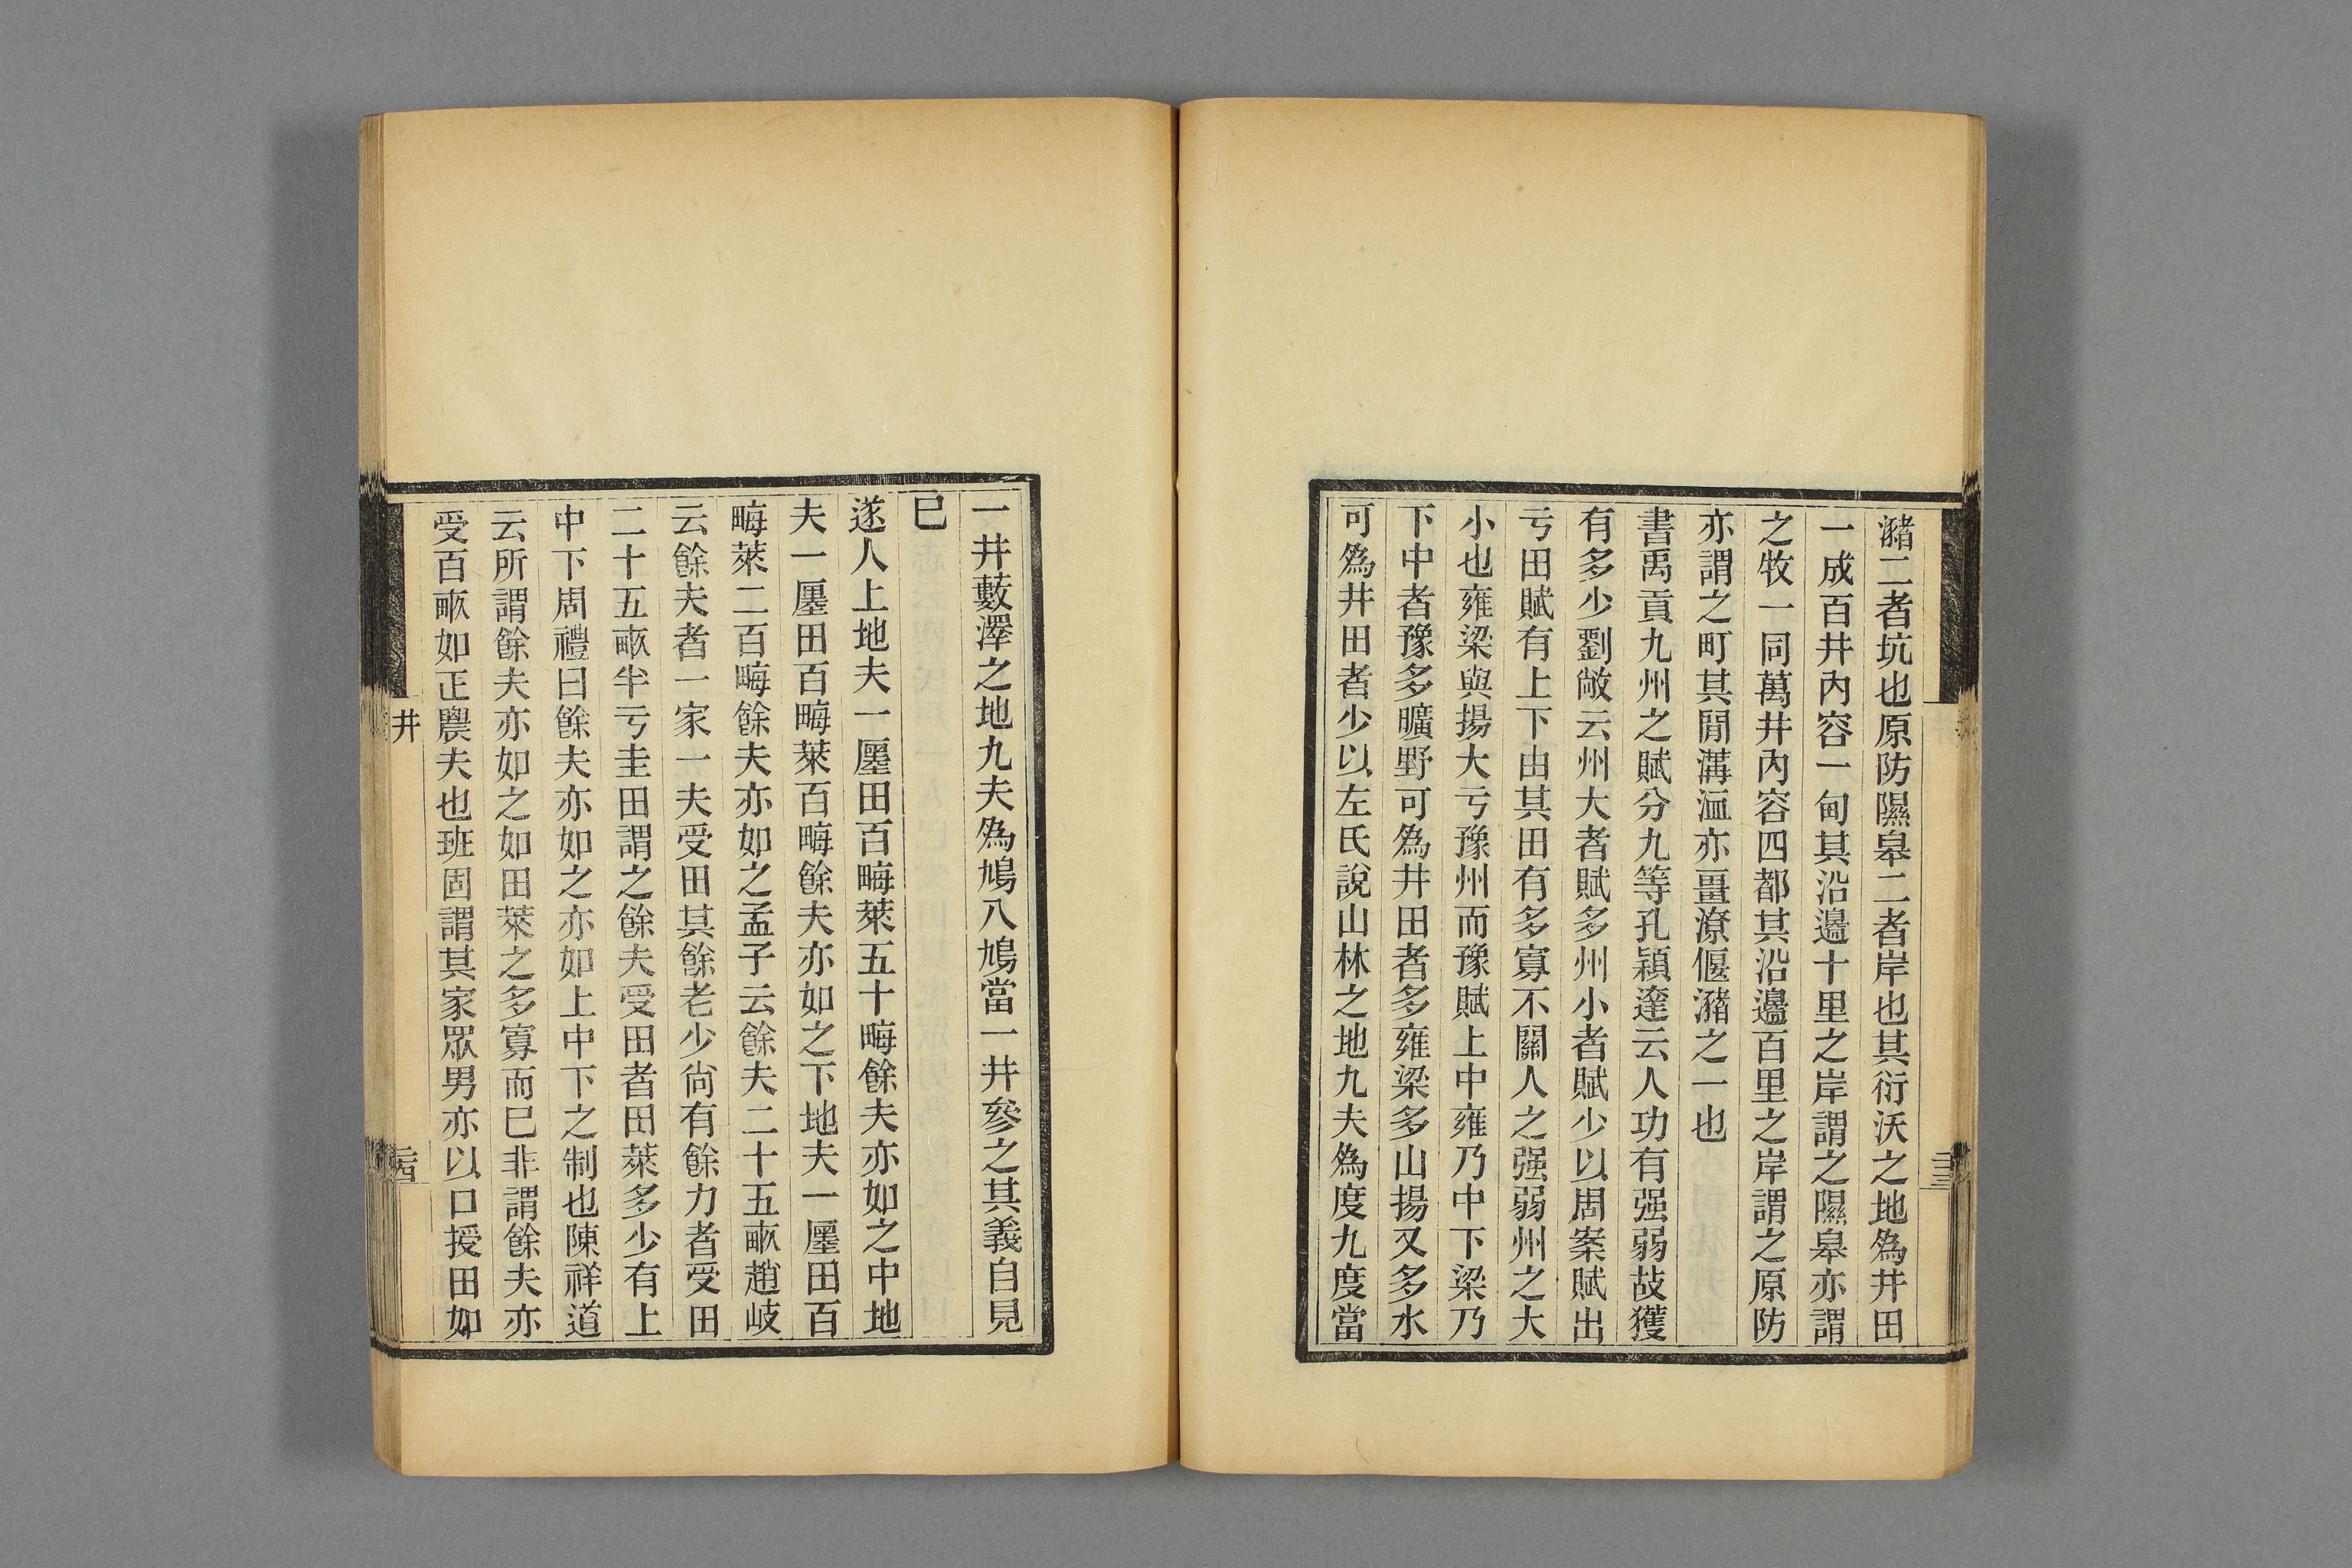 瀦二者坑也原防隰皋二者岸也其衍沃之地爲井田
一成百井內容一甸其沿邊十里之岸謂之隰皋亦謂
之牧一同萬井內容四都其沿邊百里之岸謂之原防
亦謂之町其閒溝洫亦畺潦偃瀦之一也
書禹貢九州之賦分九等孔穎達云人功有强弱故獲
有多少劉敞云州大者賦多州小者賦少以周案賦出
亏田賦有上下由其田有多寡不關人之强弱州之大
小也雍梁與揚大亏豫州而豫賦上中雍乃中下梁乃
下中者豫多曠野可爲井田者多雍梁多山揚又多水
可爲井田者少以左氏說山林之地九夫爲度九度當
一井藪澤之地九夫爲鳩八鳩當一井參之其義自見
巳
遂人上地夫一廛田百畮萊五十畮餘夫亦如之中地
夫一廛田百畮萊百畮餘夫亦如之下地夫一廛田百
畮萊二百畮餘夫亦如之孟子云餘夫二十五畝趙岐
云餘夫者一家一夫受田其餘老少尙有餘力者受田
二十五畝半亏圭田謂之餘夫受田者田萊多少有上
中下周禮曰餘夫亦如之亦如上中下之制也陳祥道
云所謂餘夫亦如之如田萊之多寡而巳非謂餘夫亦
受百畝如正農夫也班固謂其家眾男亦以口授田如
井